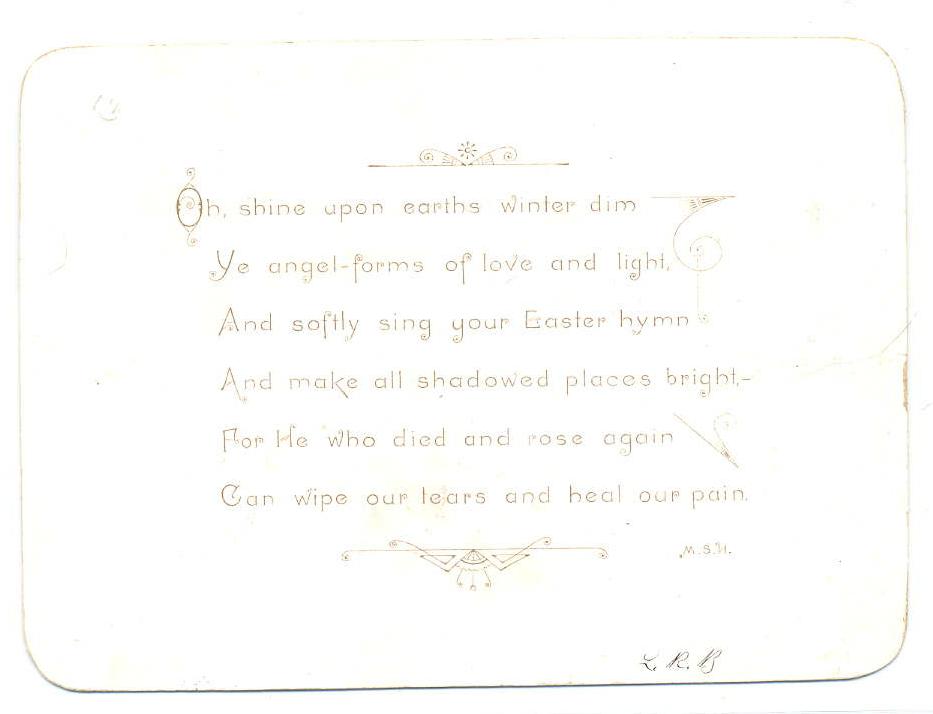 Oh, shine upon earths winter dim
Ye angel-forms of love and light,
And softly sing your Easter hymn
And make all shadowed places bright,-
For He who died and rose again
Can wipe our tears and heal our pain.
M.S.H.
L.R.B